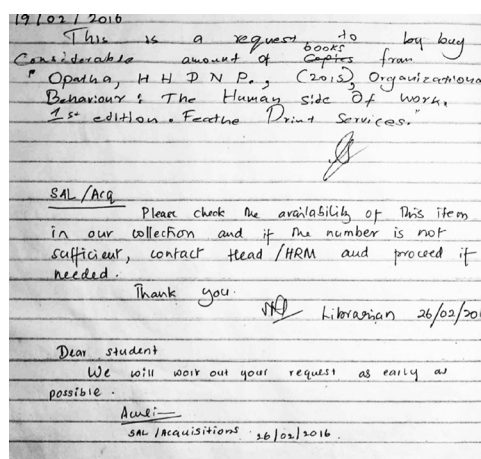 19/02/2016
This is a request to by buy
Considerable amount of books from
" Opatha, H H D N P., (2015), Organizationa
Behaviour : The Human side Of work.
1st edition. Feathe Print Services."
SAL/Acq
Please check the availability of this item
in our collection and if the number is not
sufficient, contact Head/HRM and proceed if
needed.
Thank you.
Librarian 26/02/201
Dear student
We will work out your request as early as
possible.
SAL/Acquisitions 26/02/2016.